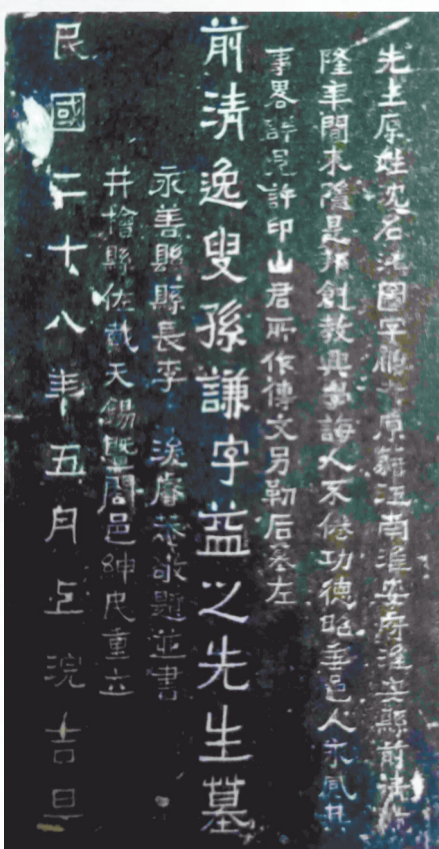 先生原姓沈名洪图字鵬 原籍江南淮安府淮安縣前清
隆年間來隱是邦創教興夢誨人不倦功德昭垂邑人永感其
事畧詳見許印山君所作傳文另勒后墓左
前清逸叟孫謙字益之先生墓
永善縣縣長李 敬題並書
井檜縣佐戴天錫暨閤邑紳民重立
民國二十八年五月上浣吉旦